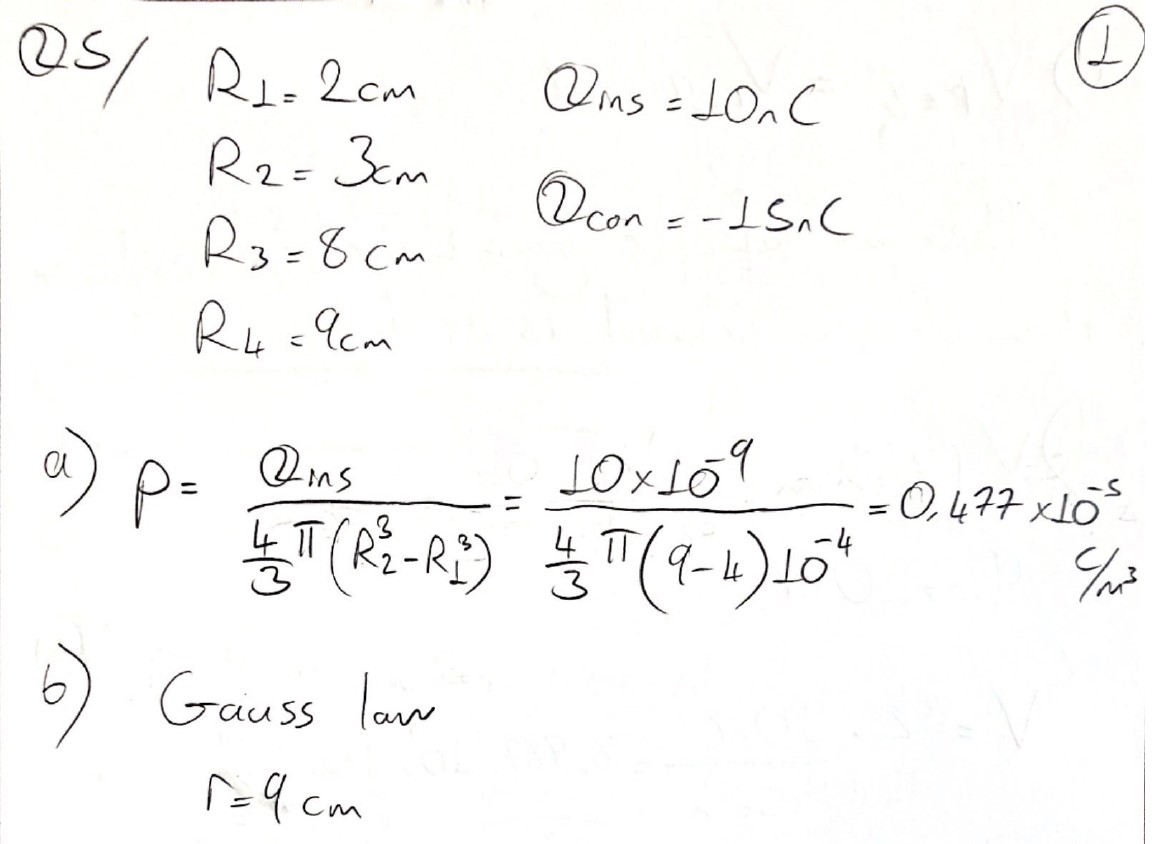 Q5/ ①
R1 = 2cm Qins = 10nC
R2 = 3cm
Qcon = -15nC
R3 = 8cm
R4 = 9cm
a) ρ = Qins / (4/3 π (R2³ - R1³)) = 10×10⁻⁹ / (4/3 π (9-4)10⁻⁴) = 0,477×10⁻⁵ C/m³
b) Gauss law
r = 9 cm